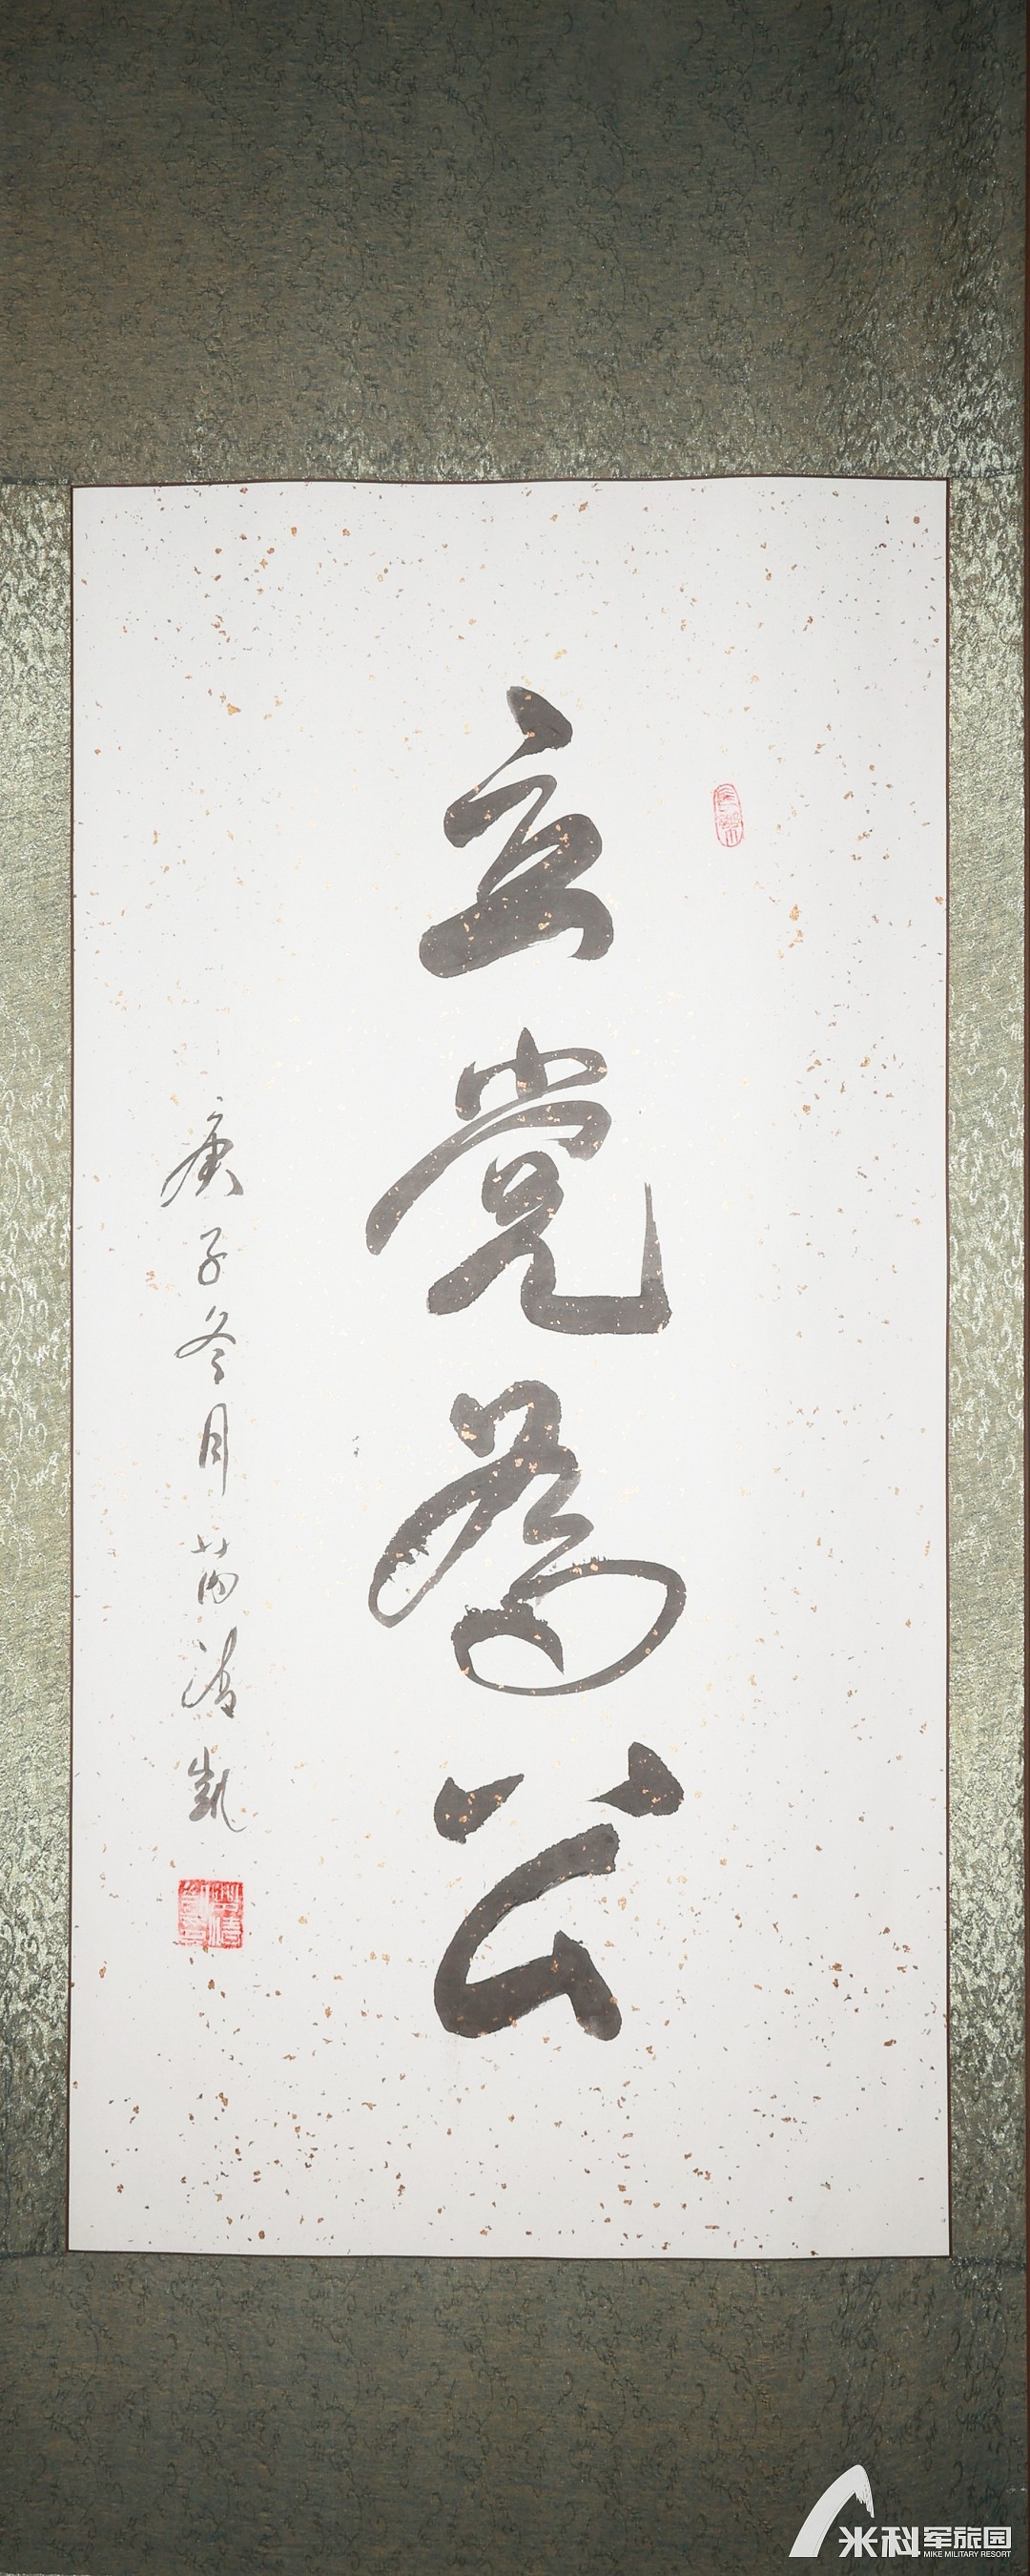 立党为公
庚子冬月苗清凯
米科军旅园
MIKE MILITARY RESORT